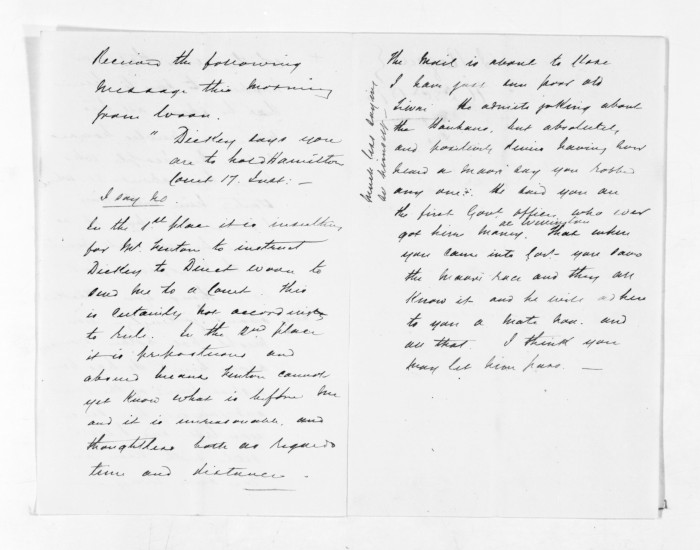 Received the following
message this morning
from Woon.
" Dickey says you
are to hold Hamilton
Court 17. Inst: —
I say no.
In the 1st place it is insulting
for Mr Fenton to instruct
Dickey to Direct Woon to
send me to a Court. This
is certainly not according
to rule. In the 2nd place
it is preposterous and
absurd because Fenton cannot
yet know what is before me
and it is unreasonable and
thoughtless both as regards
time and distance.
The Mail is about to close
I have just seen poor old
Tiwai. He admits joking about
the Hauhaus, but absolutely
and positively denies having ever
heard a Maori say you robbed
any one. He said you are
the first Govt. officer who ever
got him money at Wellington. That when
you came into Govt — you saved
the Maori race and they all
know it and he will adhere
to you a mate noa. and
all that. I think you
may let him pass. —
much less saying
so himself —